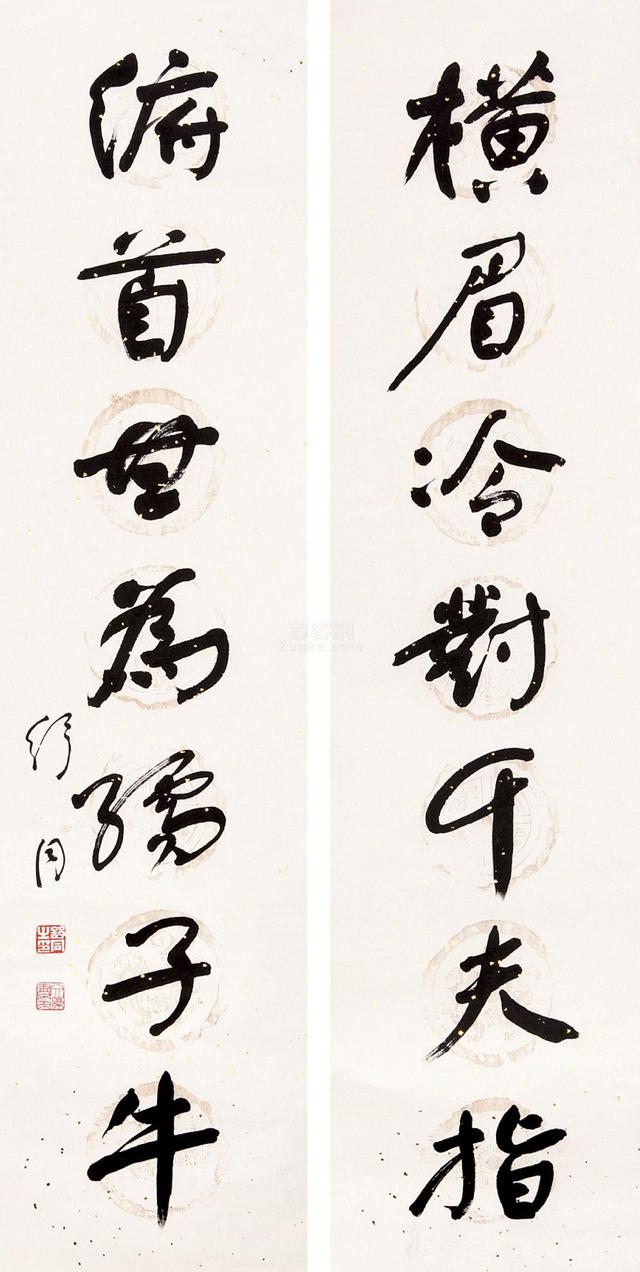 橫眉冷對千夫指
俯首甘為孺子牛
舒同
舒同之印
尊客網
Zunke.com